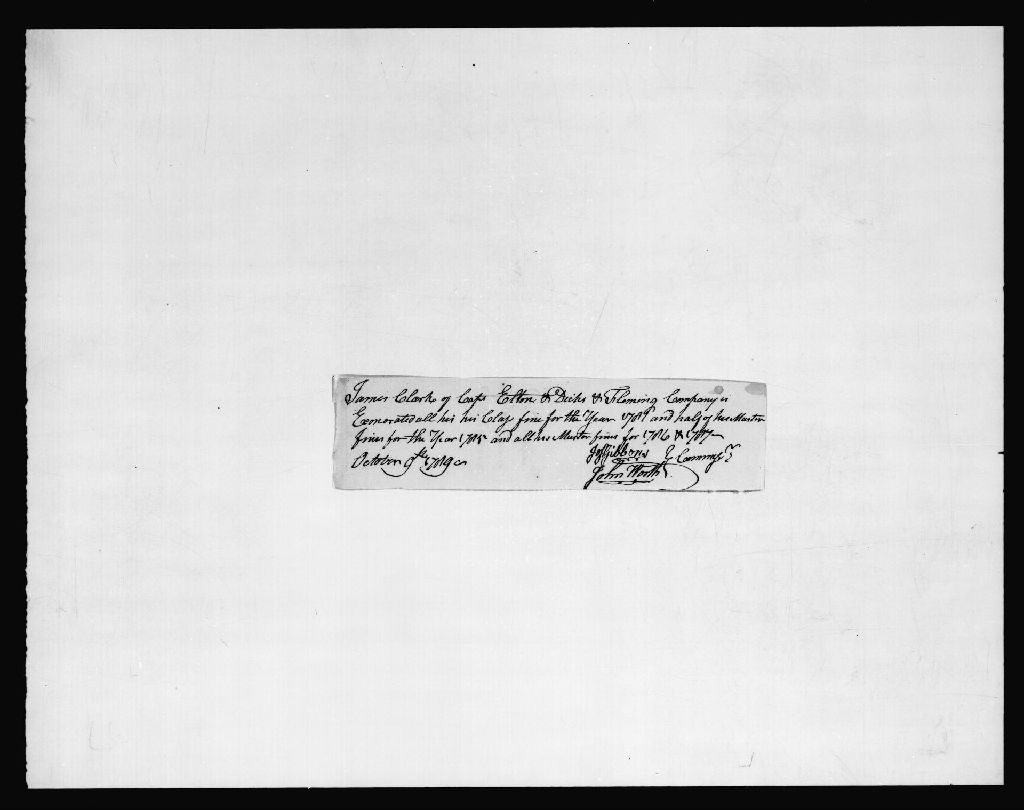 James Clark of Capt Elton & Dicks & Fleming Company is
Exonorated all his his Clas fine for the Year 1781 and half of his Muster
fines for the Year 1785 and all his Muster fines for 1786 & 1787
October 9th 1789
Jos Gibbons
John Worth